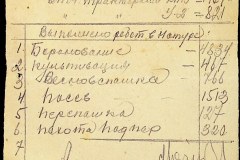 У-2 = 821
Выполнено работ в натуре:
1. Боронование – 4834
2. Культивация – 467
3. Весновспашка 766
4. Посев 1513
5. Перепашка 127
6. пахота под пар 320
7